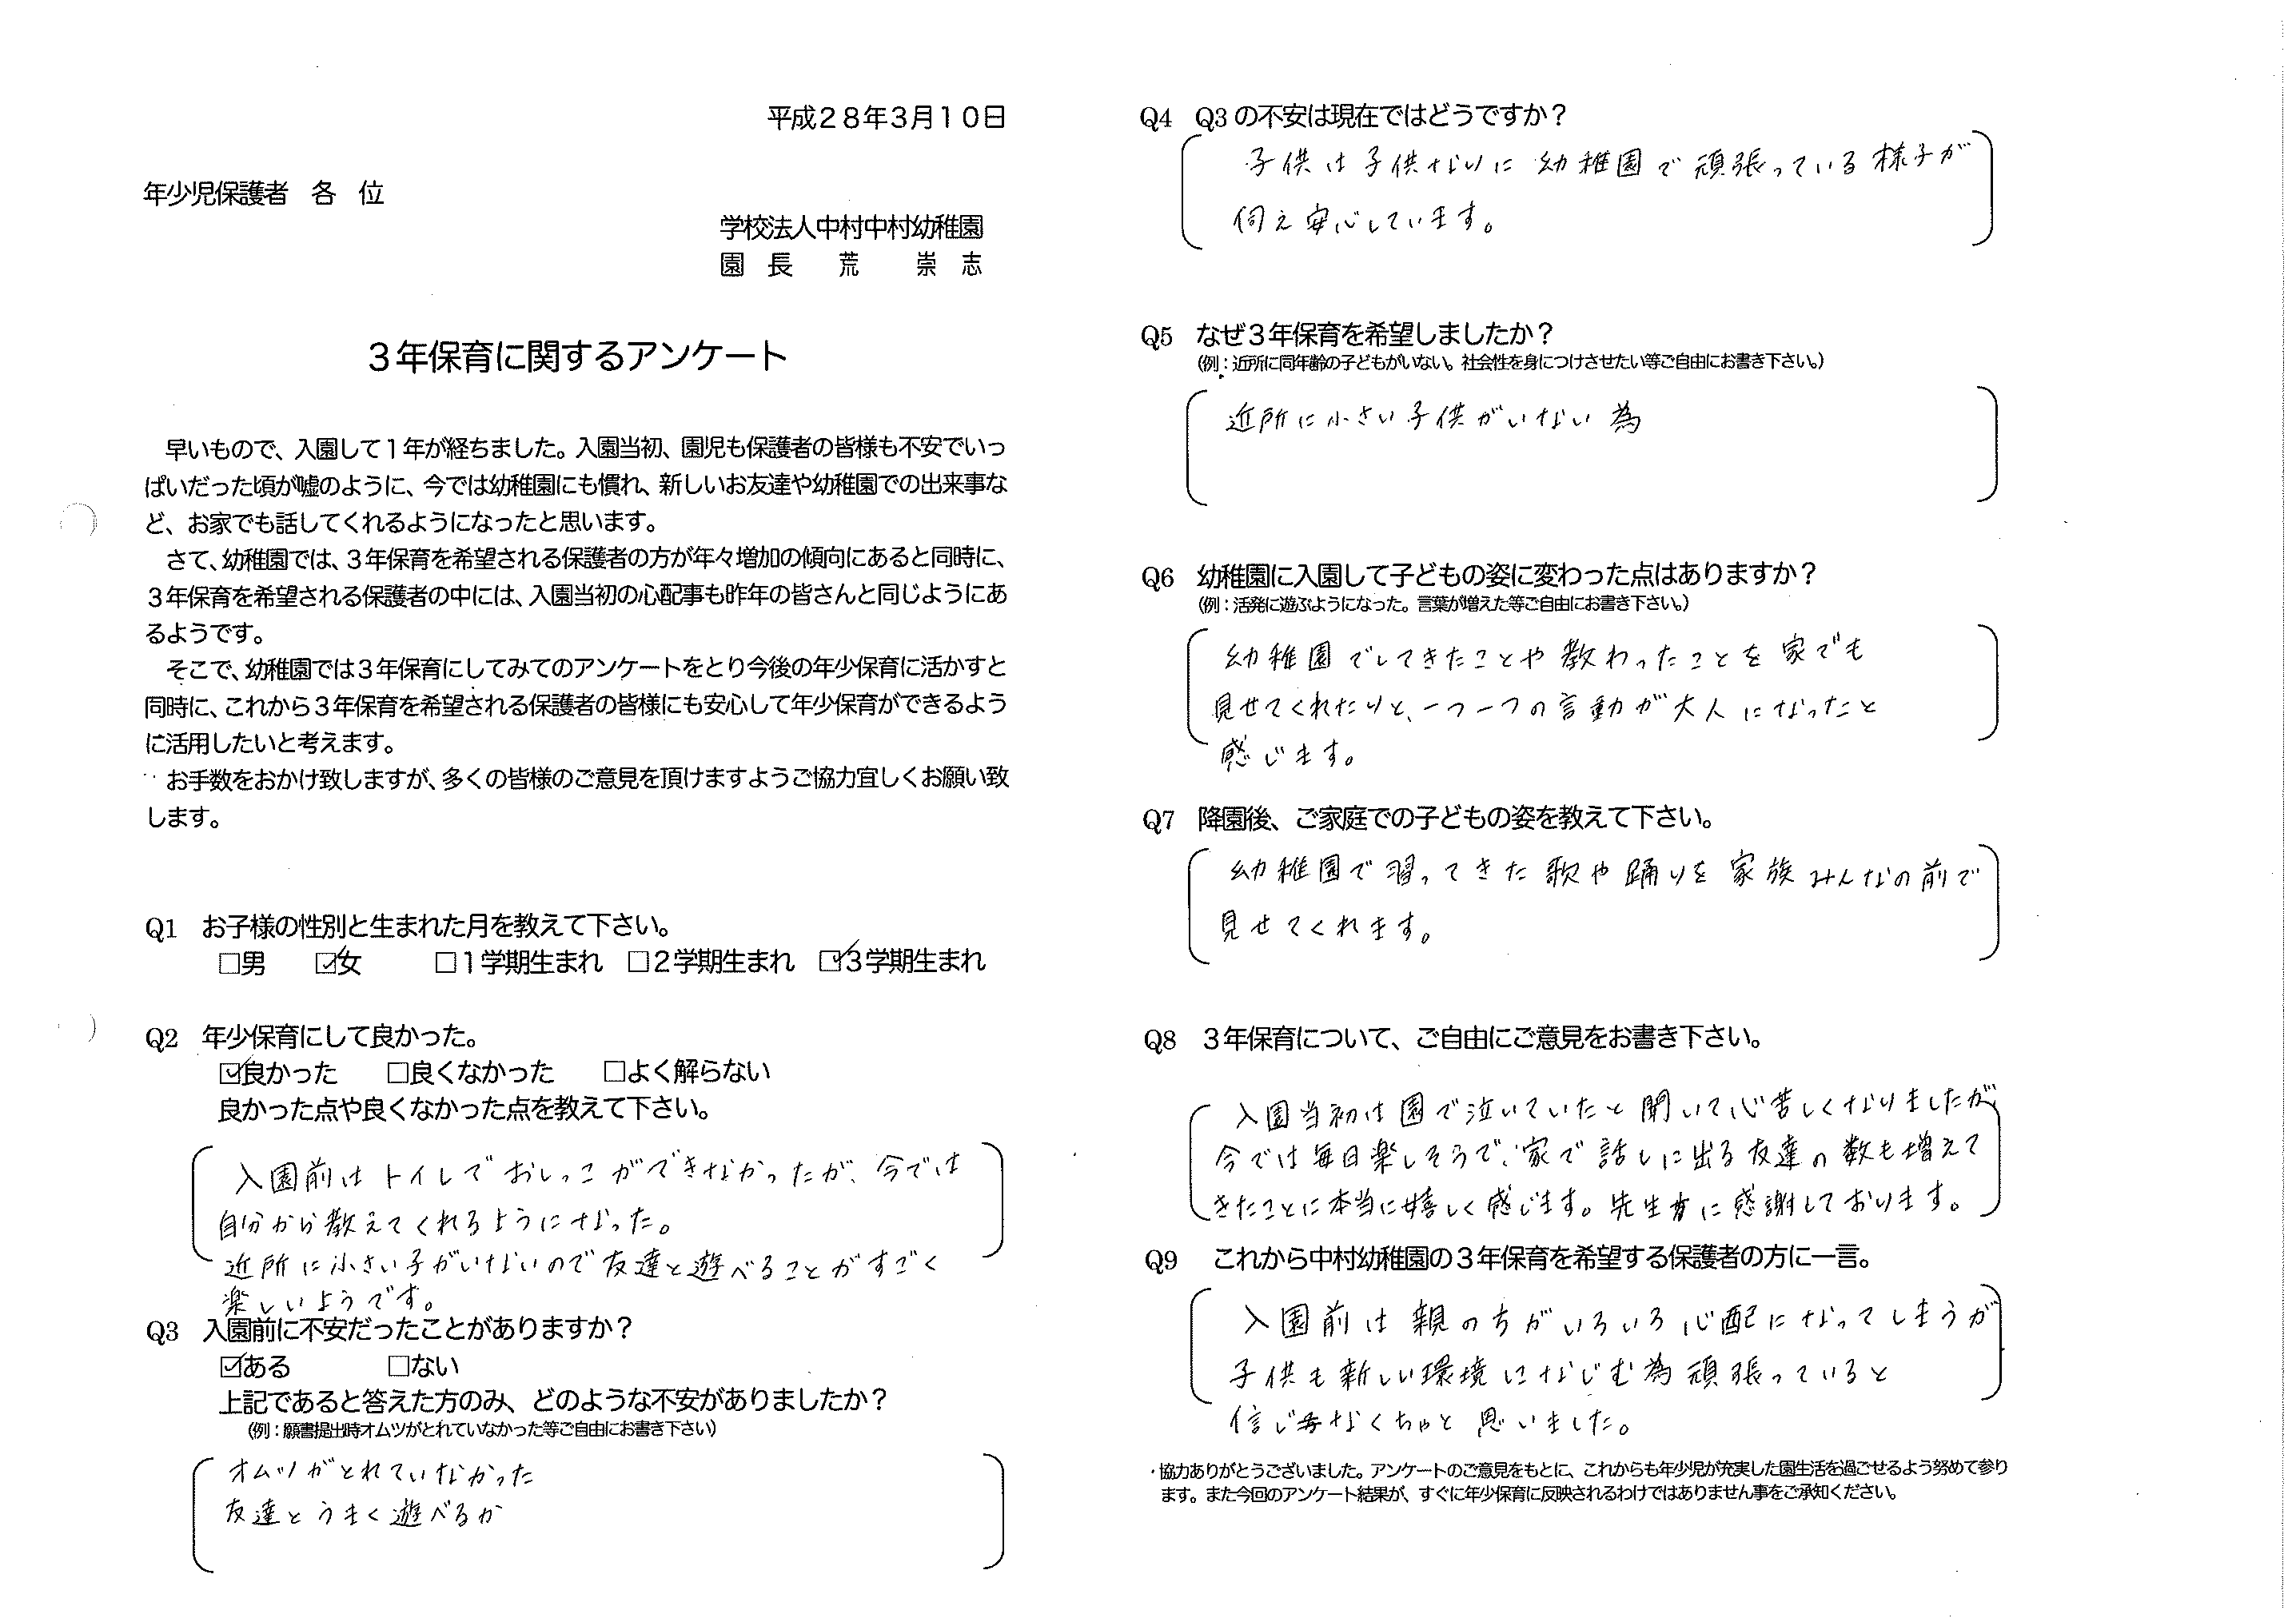 平成２８年３月１０日
年少児保護者　各　位
学校法人中村中村幼稚園
園　長　　荒　　崇　志
３年保育に関するアンケート
早いもので、入園して１年が経ちました。入園当初、園児も保護者の皆様も不安でいっ
ぱいだった頃が嘘のように、今では幼稚園にも慣れ、新しいお友達や幼稚園での出来事な
ど、お家でも話してくれるようになったと思います。
さて、幼稚園では、３年保育を希望される保護者の方が年々増加の傾向にあると同時に、
３年保育を希望される保護者の中には、入園当初の心配事も昨年の皆さんと同じようにあ
るようです。
そこで、幼稚園では３年保育にしてみてのアンケートをとり今後の年少保育に活かすと
同時に、これから３年保育を希望される保護者の皆様にも安心して年少保育ができるよう
に活用したいと考えます。
お手数をおかけ致しますが、多くの皆様のご意見を頂けますようご協力宜しくお願い致
します。
Q1　お子様の性別と生まれた月を教えて下さい。
□男　☑女　□１学期生まれ　□２学期生まれ　☑３学期生まれ
Q2　年少保育にして良かった。
☑良かった　□良くなかった　□よく解らない
良かった点や良くなかった点を教えて下さい。
入園前はトイレでおしっこができなかったが、今では
自分から教えてくれるようになった。
近所に小さい子がいないので友達と遊べることがすごく
楽しいようです。
Q3　入園前に不安だったことがありますか？
☑ある　□ない
上記であると答えた方のみ、どのような不安がありましたか？
（例：願書提出時オムツがとれていなかった等ご自由にお書き下さい）
オムツがとれていなかった
友達とうまく遊べるか
Q4　Q3の不安は現在ではどうですか？
子供は子供なりに幼稚園で頑張っている様子が
伺え安心しています。
Q5　なぜ３年保育を希望しましたか？
（例：近所に同年齢の子どもがいない。社会性を身につけさせたい等ご自由にお書き下さい。）
近所に小さい子供がいない為
Q6　幼稚園に入園して子どもの姿に変わった点はありますか？
（例：活発に遊ぶようになった。言葉が増えた等ご自由にお書き下さい。）
幼稚園でしてきたことや教わったことを家でも
見せてくれたりと、一つ一つの言動が大人になったと
感じます。
Q7　降園後、ご家庭での子どもの姿を教えて下さい。
幼稚園で習ってきた歌や踊りを家族みんなの前で
見せてくれます。
Q8　３年保育について、ご自由にご意見をお書き下さい。
入園当初は園で泣いていたと聞いて心苦しくなりましたが、
今では毎日楽しそうで、家で話しに出る友達の数も増えて
きたことに本当に嬉しく感じます。先生方に感謝しております。
Q9　これから中村幼稚園の３年保育を希望する保護者の方に一言。
入園前は親の方がいろいろ心配になってしまうが
子供も新しい環境になじむ為頑張っていると
信じなくちゃと思いました。
協力ありがとうございました。アンケートのご意見をもとに、これからも年少児が充実した園生活を過ごせるよう努めて参り
ます。また今回のアンケート結果が、すぐに年少保育に反映されるわけではありません事をご承知ください。